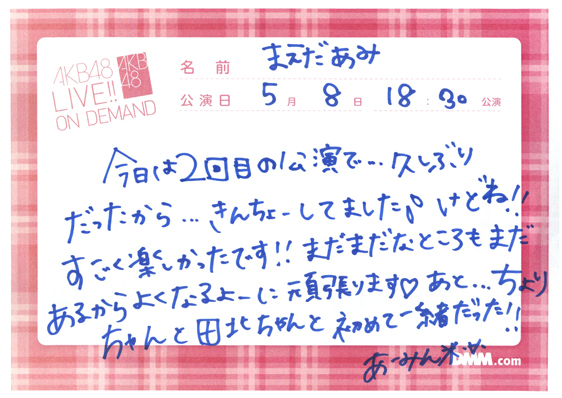 AKB48
LIVE!!
ON DEMAND
AKB
48
名前 まえだあみ
公演日 5月 8日 18:30 公演
今日は2回目の公演で…久しぶり
だったから…きんちょーしてました♪けどね!!
すごく楽しかったです!!まだまだなところもまだ
あるからよくなるよーに頑張ります♡あと…ちより
ちゃんと田北ちゃんと初めて一緒だった!!
あーみん
DMM.com